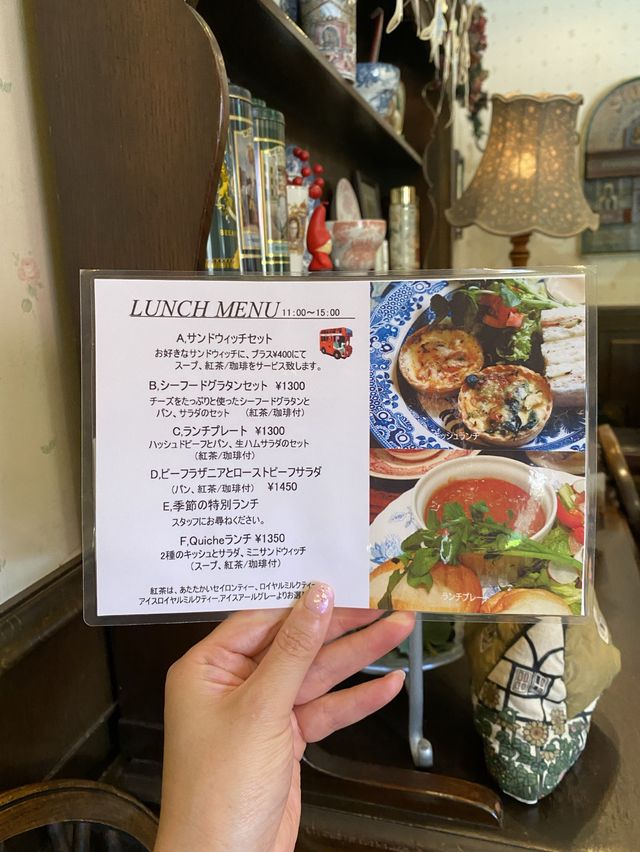 LUNCH MENU 11:00〜15:00
A,サンドウィッチセット
お好きなサンドウィッチに、プラス¥400にて
スープ、紅茶/珈琲をサービス致します。
B,シーフードグラタンセット ¥1300
チーズをたっぷりと使ったシーフードグラタンと
パン、サラダのセット （紅茶/珈琲付）
C,ランチプレート ¥1300
ハッシュドビーフとパン、生ハムサラダのセット
（紅茶/珈琲付）
D,ビーフラザニアとローストビーフサラダ
（パン、紅茶/珈琲付） ¥1450
E,季節の特別ランチ
スタッフにお尋ねください。
F,Quicheランチ ¥1350
2種のキッシュとサラダ、ミニサンドウィッチ
（スープ、紅茶/珈琲付）
紅茶は、あたたかいセイロンティー、ロイヤルミルクティー
アイスロイヤルミルクティー、アイスアールグレーよりお選
キッシュランチ
ランチプレート